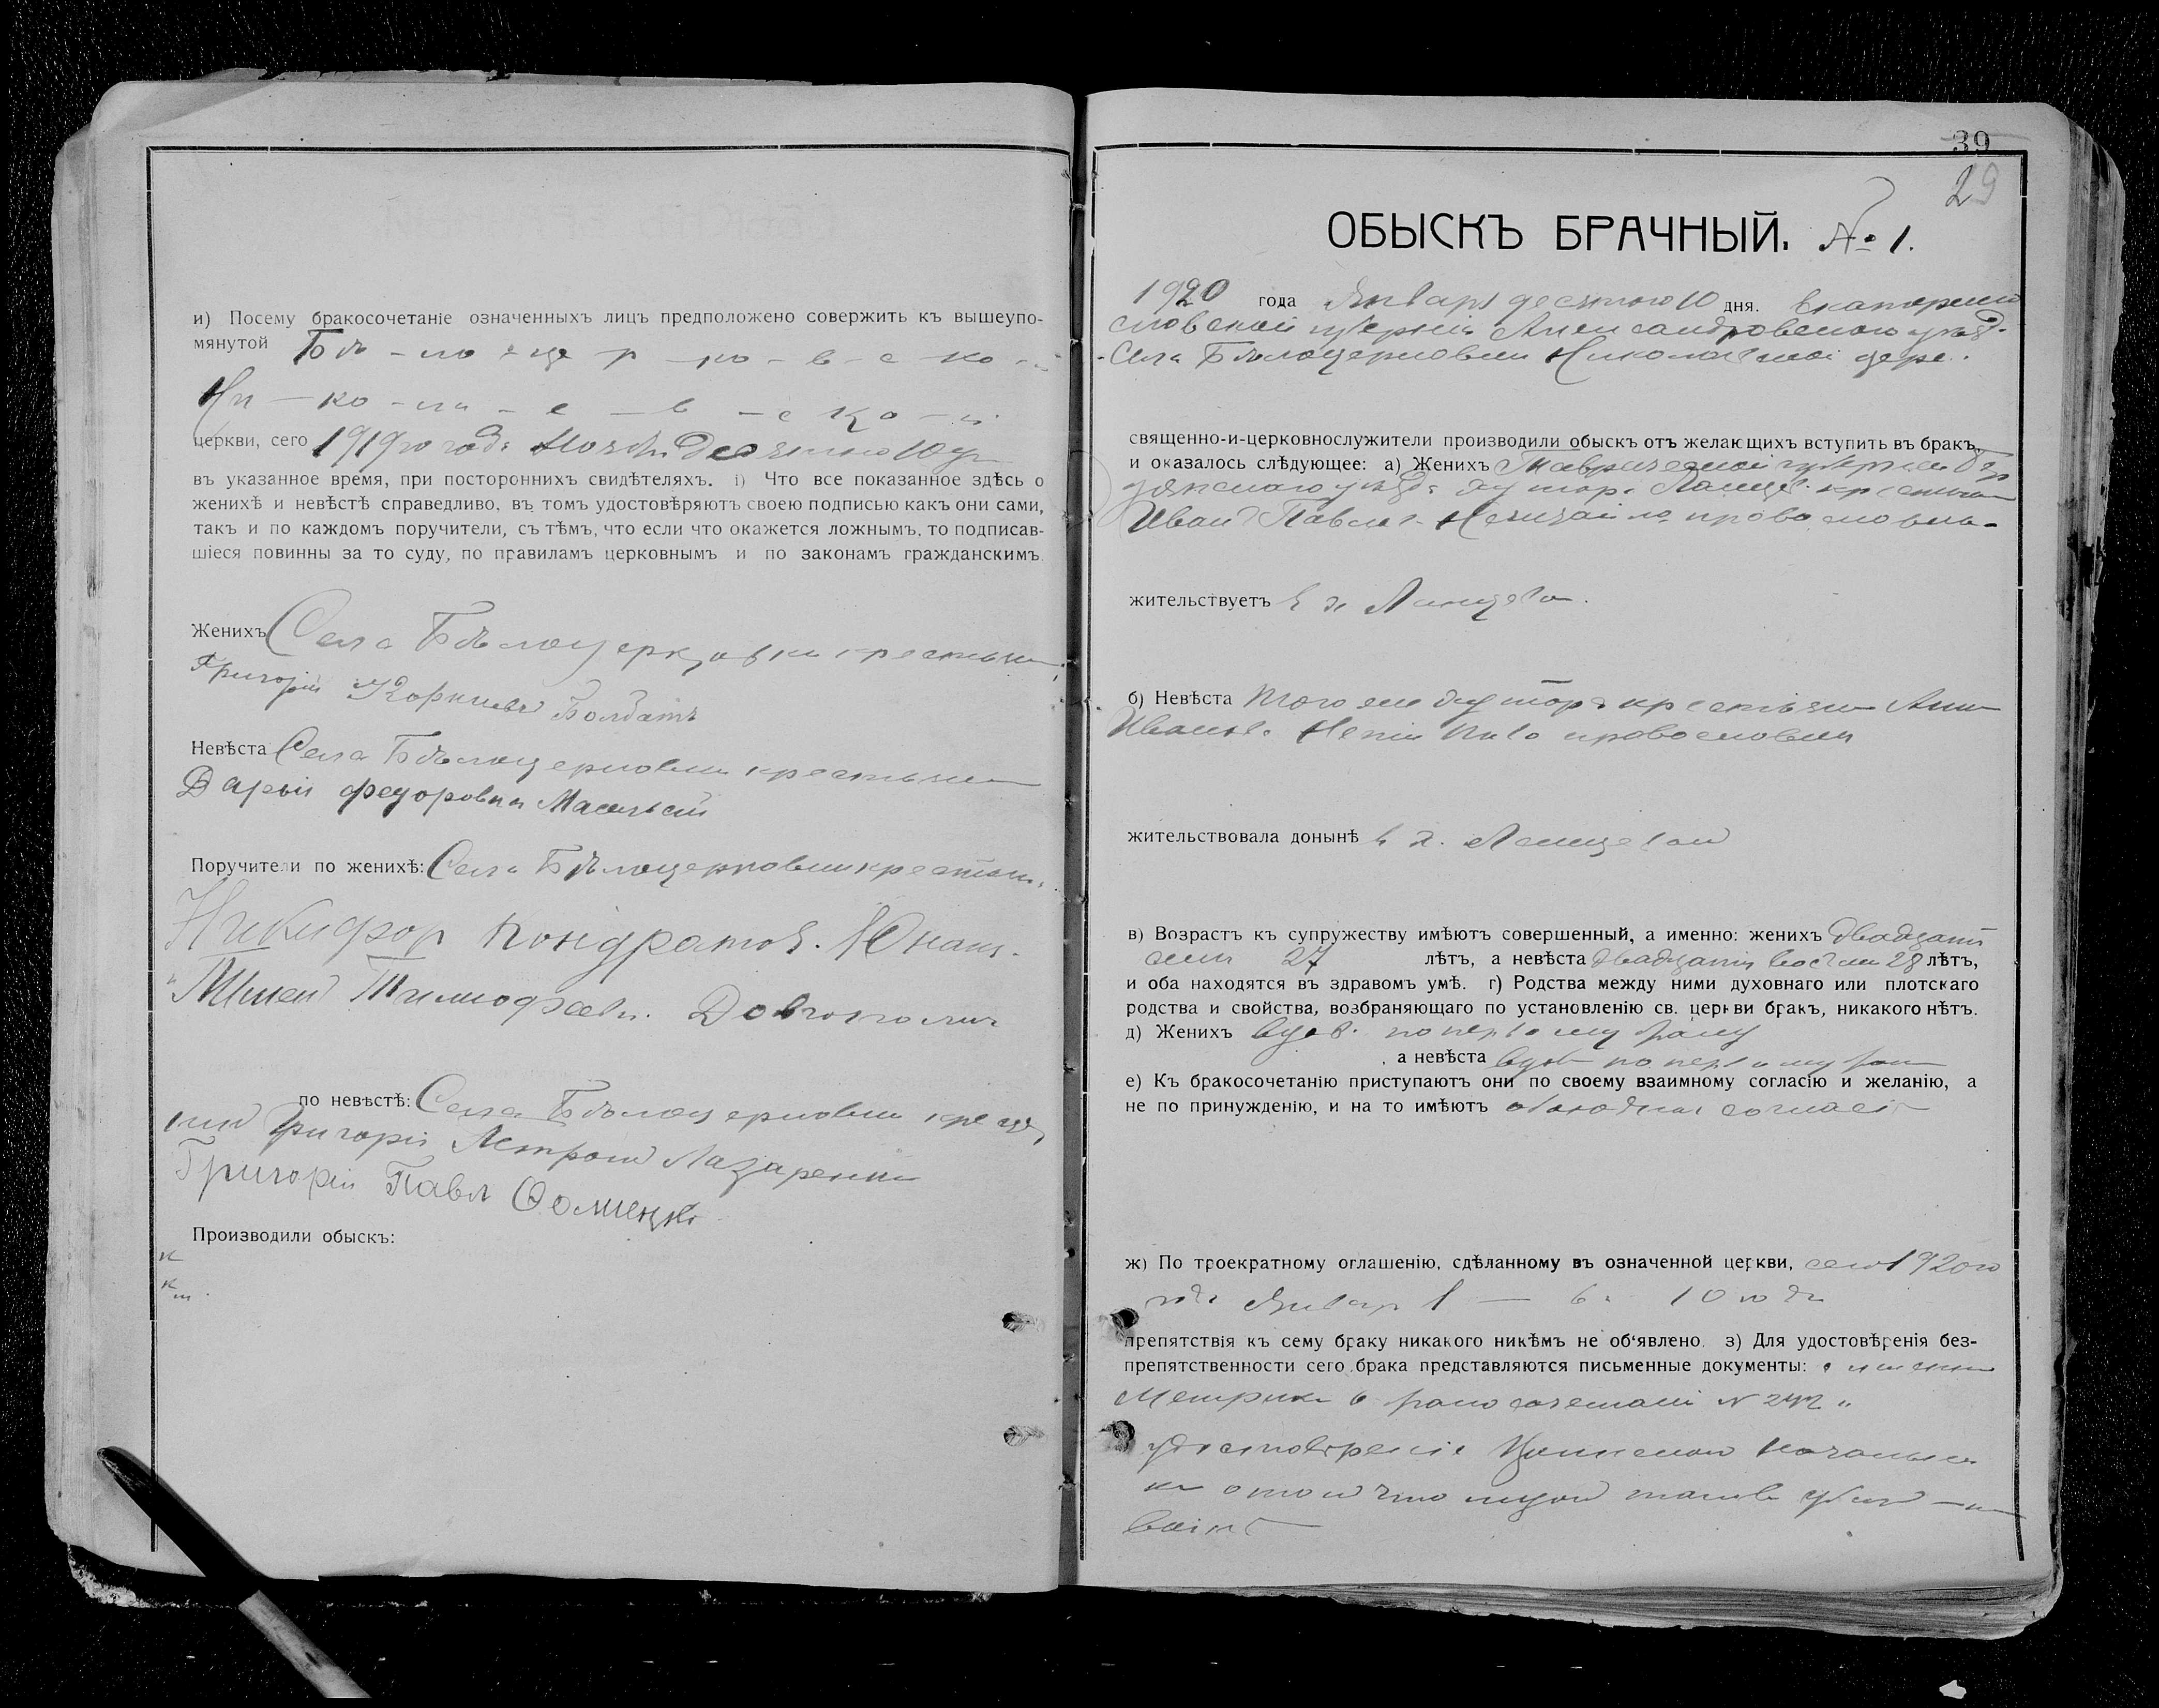 и) Посему бракосочетаніе означенныхъ лицъ предположено совержить къ вышеупо-
мянутой Бѣ - ло - це р - ко - в - с ко - й
Ни - ко - ла - е - в - с ко - й
церкви, сего 1919го года Ноября Десятаго 10 дн
въ указанное время, при постороннихъ свидѣтеляхъ. і) Что все показанное здѣсь о
женихѣ и невѣстѣ справедливо, въ томъ удостовѣряютъ своею подписью какъ они сами,
такъ и по каждомъ поручители, съ тѣмъ, что если что окажется ложнымъ, то подписав-
шіеся повинны за то суду, по правиламъ церковнымъ и по законамъ гражданскимъ.
Женихъ Села Бѣлоцерковки крестьян
Григорій Корниевъ Болдатъ
Невѣста Села Бѣлоцерковки крестьян
Дарьи Федоровна
Поручители по женихѣ: Села Бѣлоцерковки крестьян.
Никифор Кондратов.
Тимофеев.
по невѣстѣ: Села Бѣлоцерковки крес
Григорій Лазаренко
Григорій Павл
Производили обыскъ:
39
29
ОБЫСКЪ БРАЧНЫЙ. № 1.
1920 года Января десятого 10 дня. Екатерино
словской губерніи Александровского уѣзд.
Села Бѣлоцерковки Николаевской церк.
священно-и-церковнослужители производили обыскъ отъ желающихъ вступить въ бракъ,
и оказалось слѣдующее: а) Женихъ Таврической губерніи Бер
дянского уѣзда хутора крестьян
Иванъ Павлов православн
жительствуетъ в х
б) Невѣста того же хутора крестьян Анна
Иванов. православн
жительствовала донынѣ в х.
в) Возрастъ къ супружеству имѣютъ совершенный, а именно: женихъ двадцати
семи 27 лѣтъ, а невѣста двадцати восьми 28 лѣтъ,
и оба находятся въ здравомъ умѣ. г) Родства между ними духовнаго или плотскаго
родства и свойства, возбраняющаго по установленію св. церкви бракъ, никакого нѣтъ.
д) Женихъ вдов. по первому браку
а невѣста вдов по первому брак
е) Къ бракосочетанію приступаютъ они по своему взаимному согласію и желанію, а
не по принужденію, и на то имѣютъ обоюдное согласіе
ж) По троекратному оглашенію, сдѣланному въ означенной церкви, сего 1920го
года Январ 1 — 6. 10го дн
препятствія къ сему браку никакого никѣмъ не об‘явлено. з) Для удостовѣренія без-
препятственности сего брака представляются письменные документы:
Метрики о бракосочетаніи N
удостовѣреніе Воинского начальни
ка о том что убит на
войнѣ